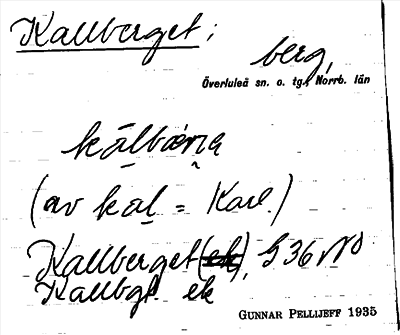 Kallberget;
berg,
Överluleå sn. o. tg., Norrb. län
kälbærıa
(av kal = Karl.)
Kallberget (ek), G36 NO
Kallbgt. ek
GUNNAR PELLIJEFF 1935